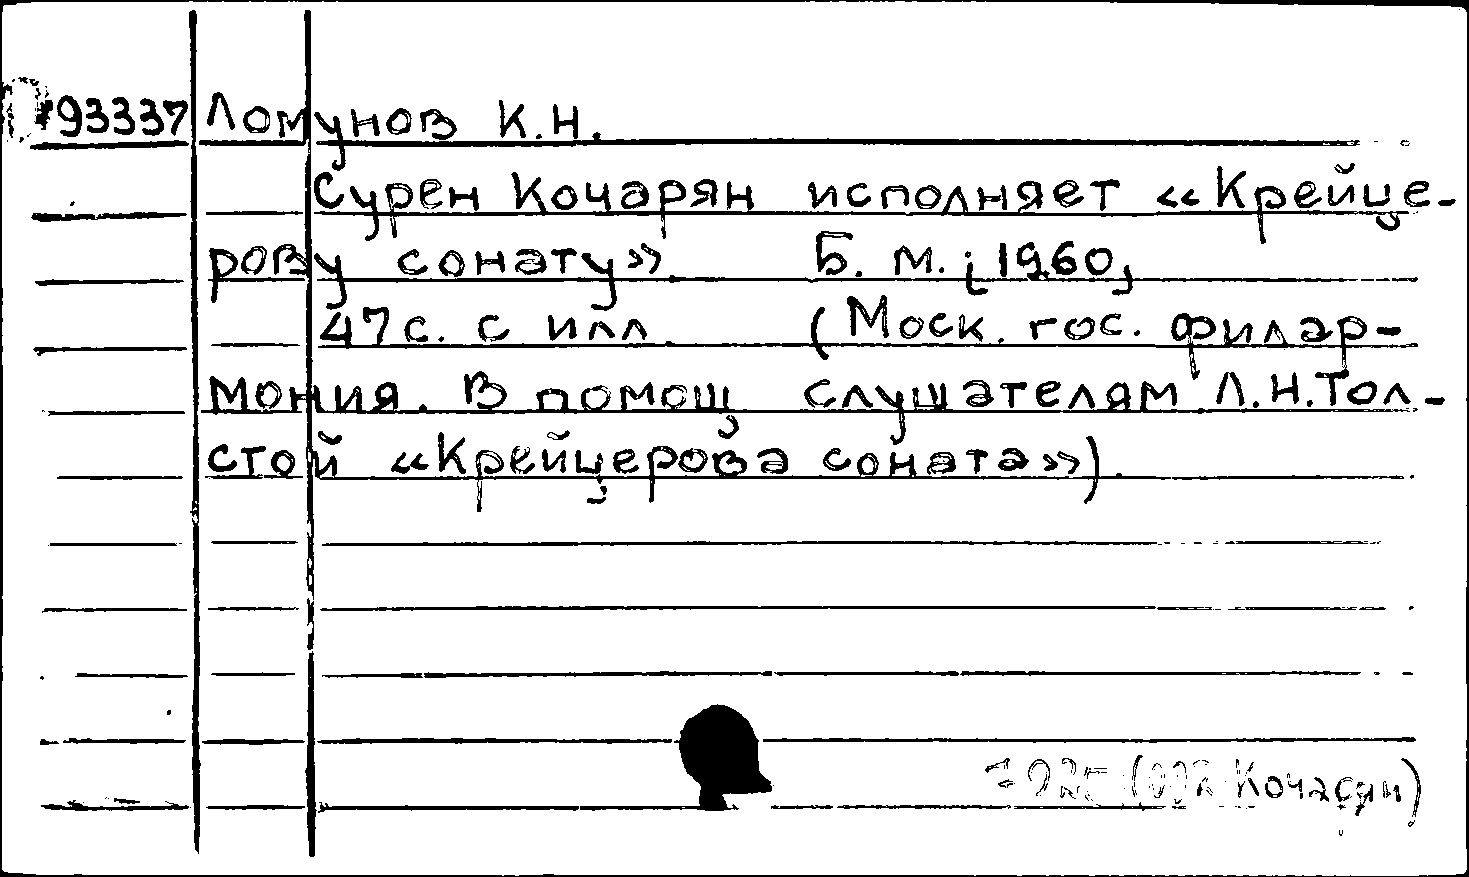 93337 Ломунов К.Н.
Сурен Кочарян исполняет «Крейце-
рову сонату». Б. м. [1960]
47 с. с илл. (Моск. гос. филар-
мония. В помощ слушателям Л.Н.Тол-
стой «Крейцерова соната»).